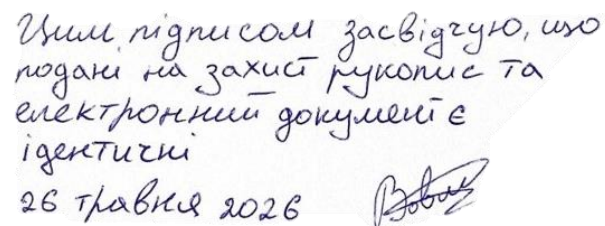 Цим підписом засвідчую, що
подані на захист рукопис та
електронний документ є
ідентичні
26 травня 2026